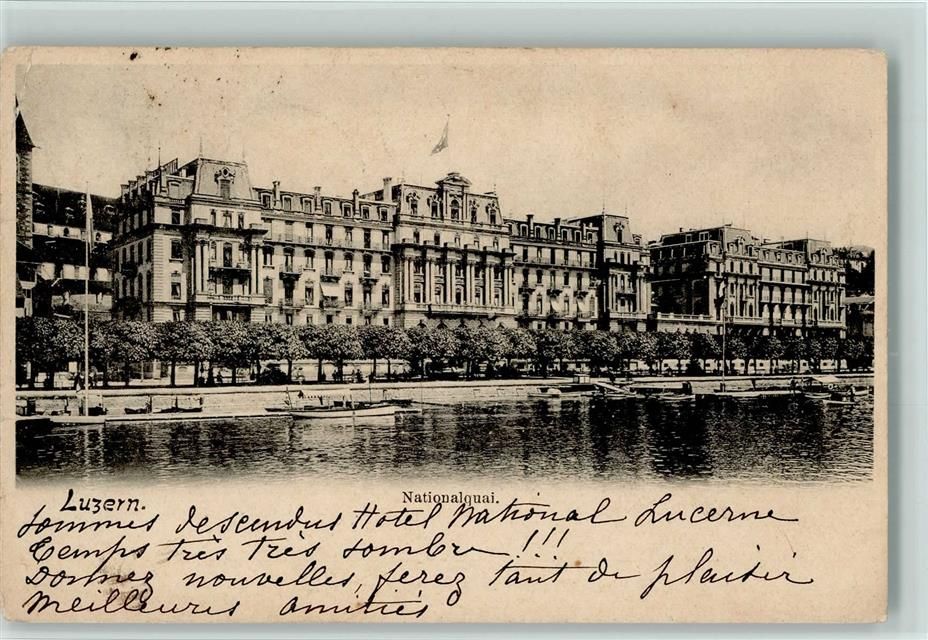 Luzern.
Nationalquai.
Sommes descendus Hotel National Lucerne
Temps très très sombre !!!
Donnez nouvelles, ferez tant de plaisir
Meilleures amitiés